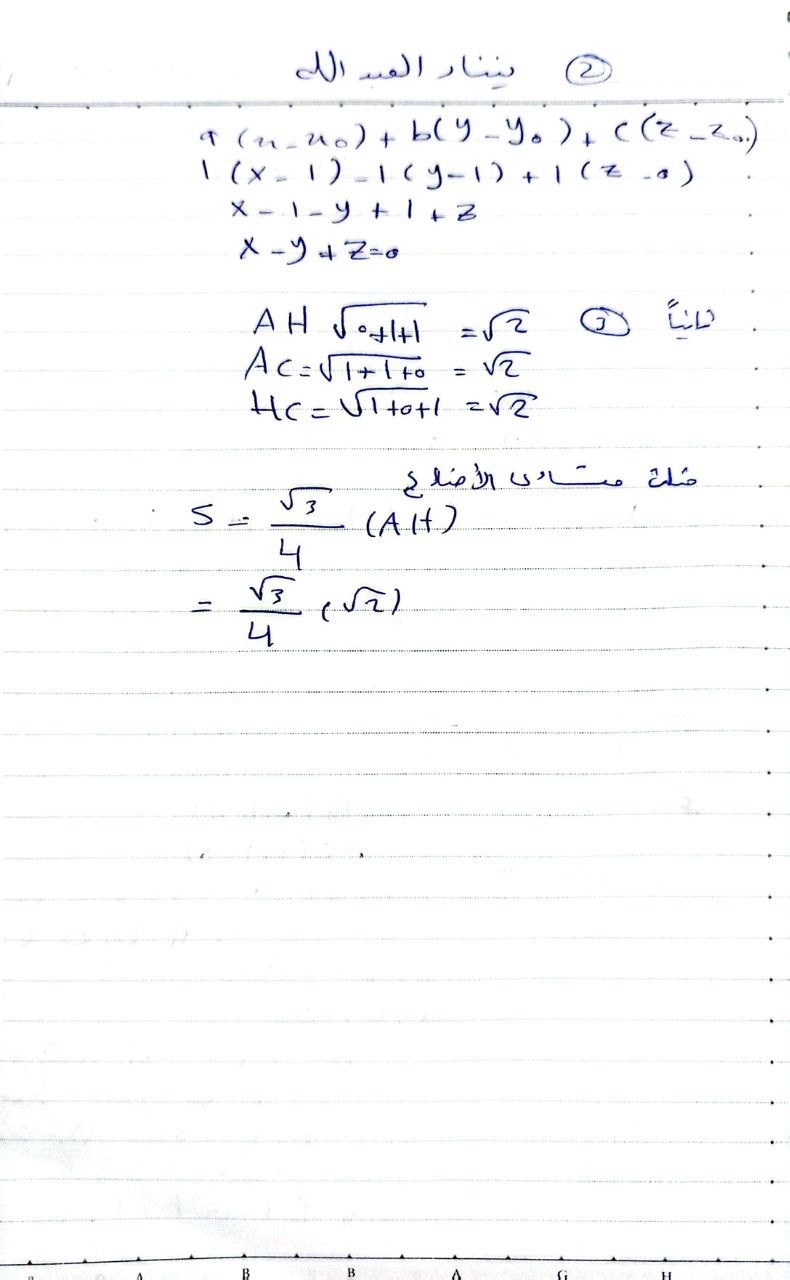 ② ينار العبد الله
a (x - x₀) + b(y - y₀) + c(z - z₀)
1 (x - 1) - 1 (y - 1) + 1 (z - 0)
x - 1 - y + 1 + z
x - y + z = 0
ثانياً ③ AH √0+1+1 = √2
AC = √1+1+0 = √2
HC = √1+0+1 = √2
مثلث متساوي الأضلاع
S = √3/4 (AH)
= √3/4 (√2)
A B B A G H